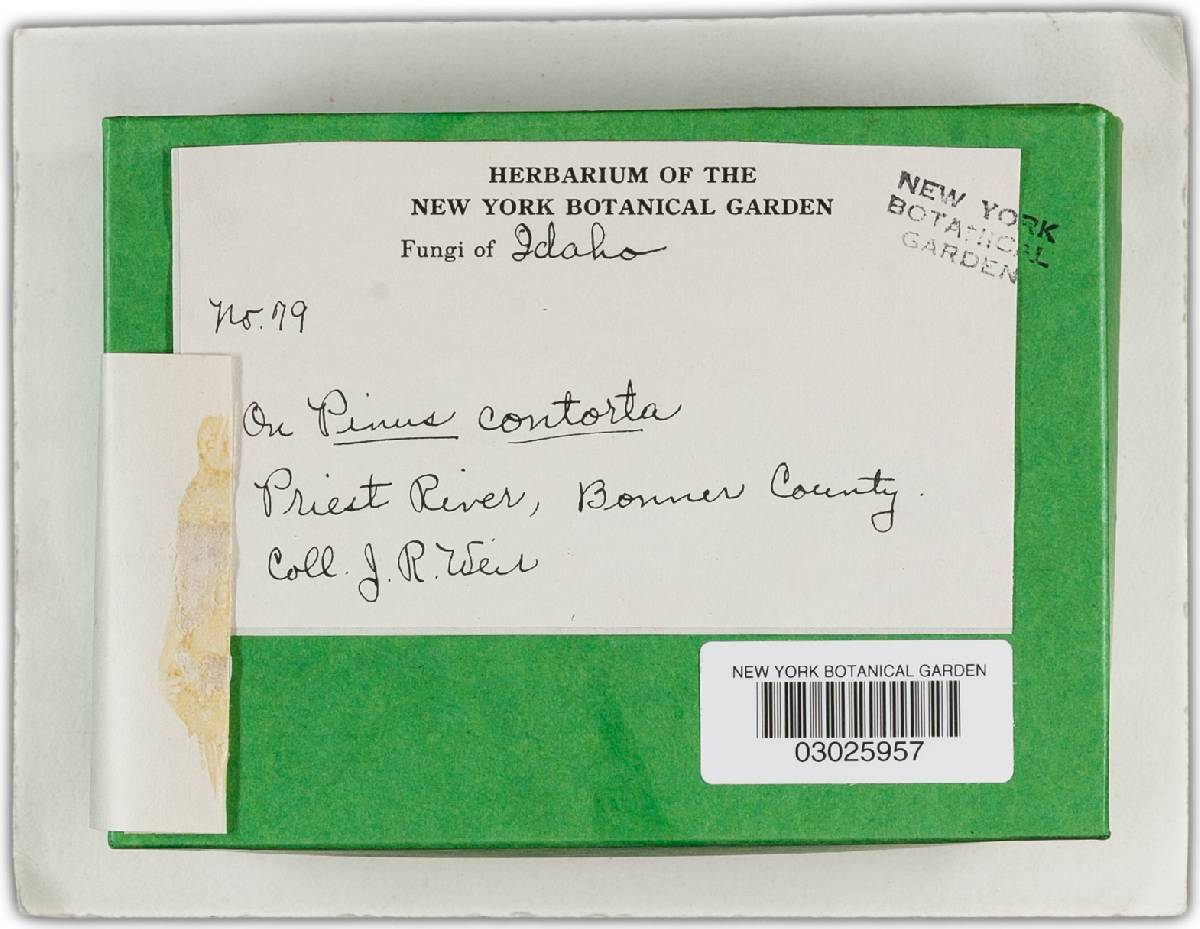 HERBARIUM OF THE
NEW YORK BOTANICAL GARDEN
Fungi of Idaho
NEW YORK
BOTANICAL
GARDEN
No. 79
On Pinus contorta
Priest River, Bonner County.
Coll. J. R. Weir
NEW YORK BOTANICAL GARDEN
03025957